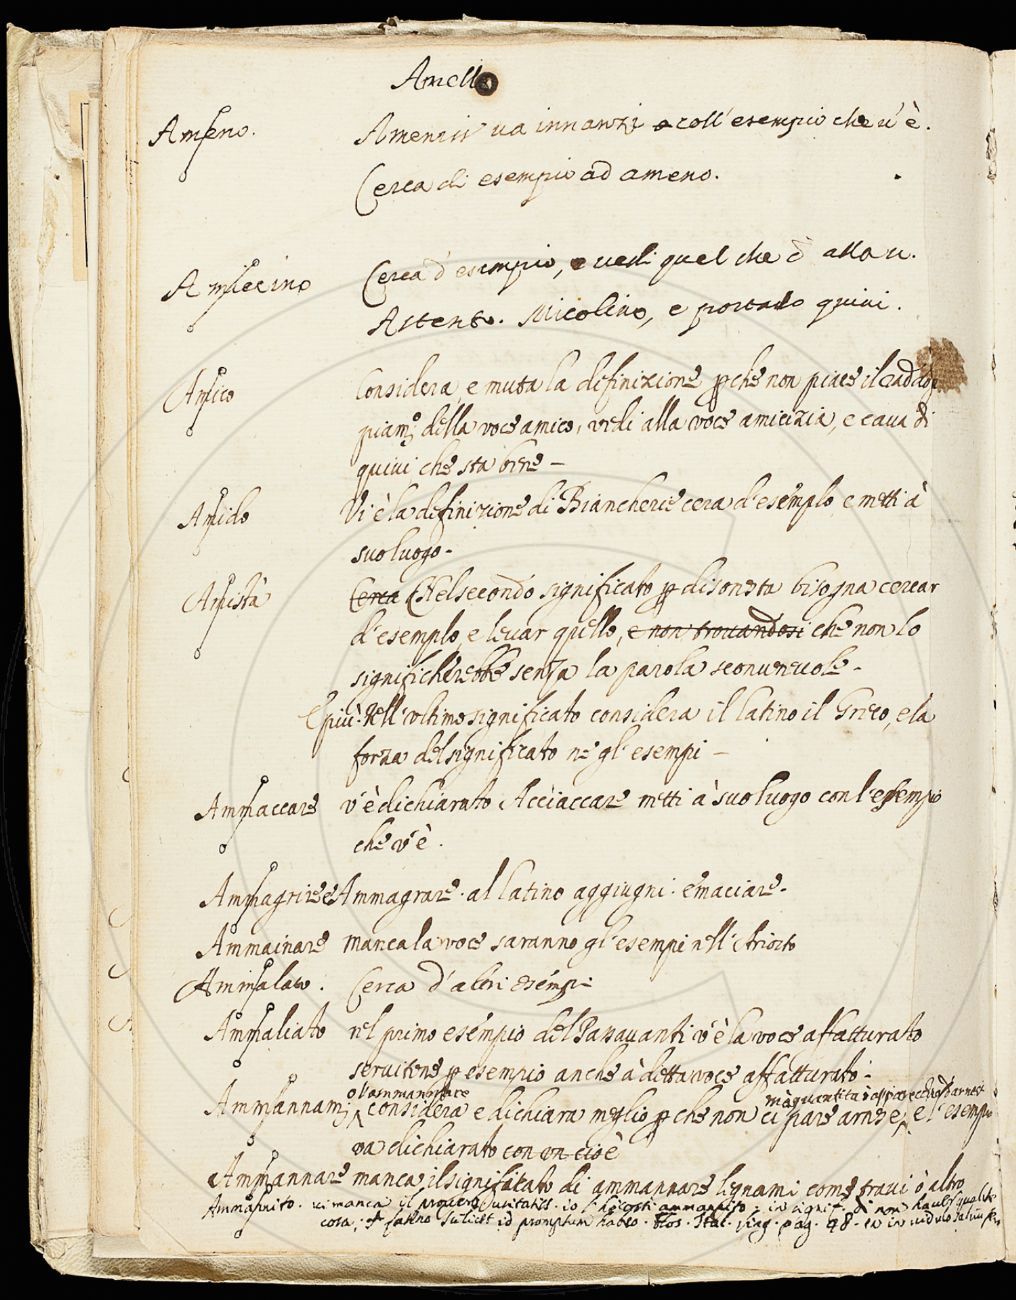 Amello
Ameno. Amenità va innanzi coll'esempio che v'è.
Cerca di esempio ad ameno.
Cerca d'esempio, e vedi quel che è alla v.
Micolino, e portalo quivi.
Amico Considera, e muta la definizione p che non piace il
piam. della voce amico, vedi alla voce amicizia, e cava di
quivi che sta bene -
Amido Vi è la definizione di Biancherie cerca d'esemplo, e metti à
suo luogo.
Amistà Cerca Nel secondo significato p disonesta bisogna cercar
d'esemplo, e levar quello, e non trovandosi che non lo
significherebbe senza la parola sconvenvole.
E più. Nell'ultimo significato considera il latino il Greco, e la
forza del significato ne gl'esempi -
Ammaccare v'è dichiarato Acciaccare metti à suo luogo con l'esempio
che v'è.
Ammagrire e Ammagrare. al latino aggiugni. emaciare.
Ammainare manca la voce saranno gl'esempi nell'Ariosto
Cerca d'altri esempi
Ammaliato nel primo esempio del Passavanti v'è la voce affatturato
servitene p esempio anche à detta voce affatturato.
Ammannam. considera e dichiara meglio p che non ci pare arnese, e l'esempio
va dichiarato con un cioè
Ammannare manca il significato di ammannare legnami come travi ò altro
Ammannito. vi manca il
cosa, id promptum habeo. Flos. Ital. ling. pag. 48.